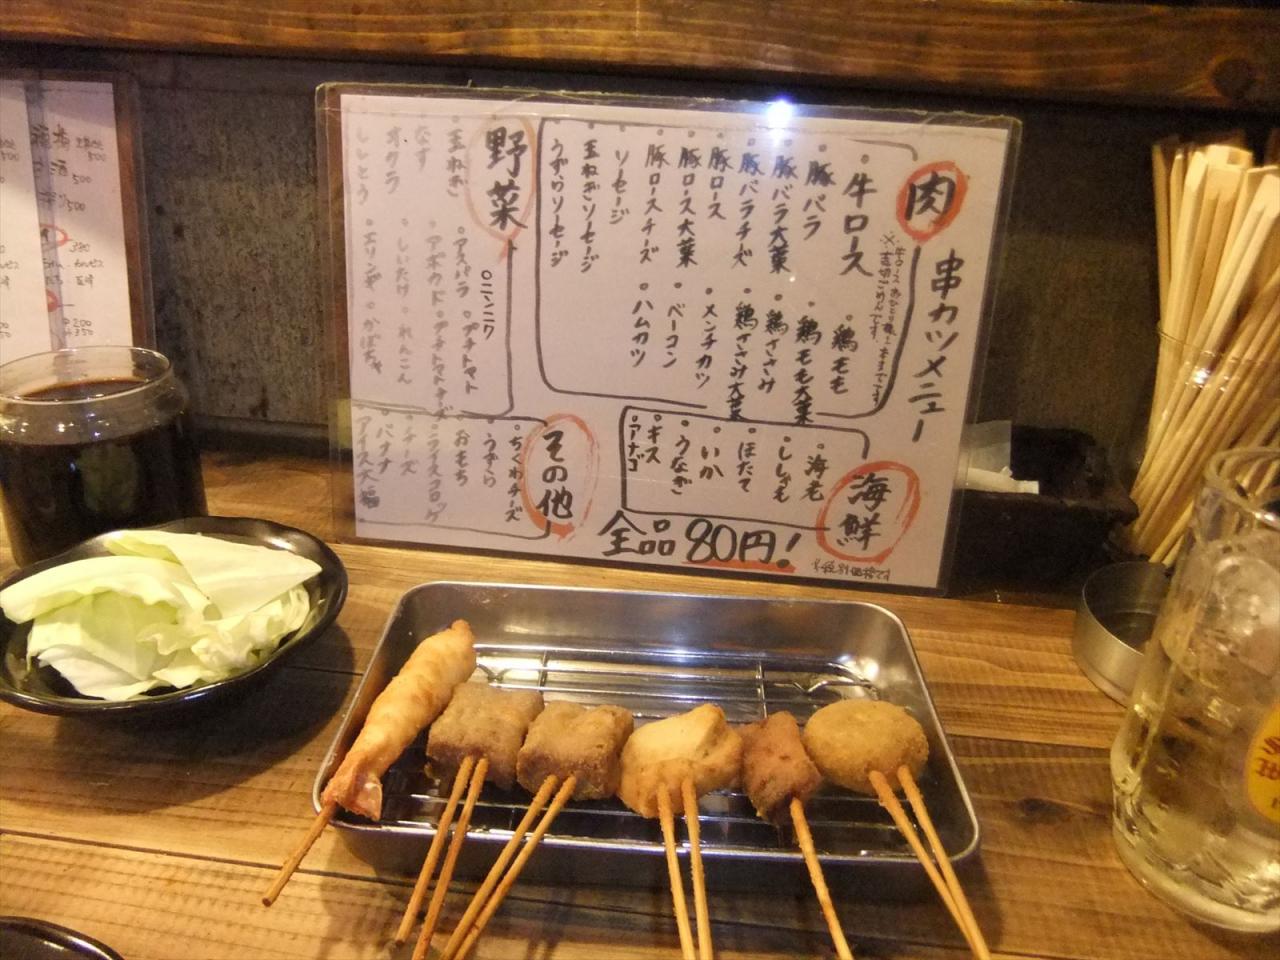 串カツメニュー
肉
※牛ロースおひとり様一本までです。
・牛ロース
・豚バラ
・豚バラ大葉
・豚バラチーズ
・豚ロース
・豚ロース大葉
・豚ロースチーズ
・ソーセージ
・玉ねぎソーセージ
・うずらソーセージ
・鶏モモ
・鶏モモ大葉
・鶏ささみ
・鶏ささみ大葉
・メンチカツ
・ベーコン
・ハムカツ
海鮮
・海老
・ししゃも
・ほたて
・いか
・うなぎ
・キス
・アナゴ
野菜
・玉ねぎ
・なす
・オクラ
・ししとう
・ニンニク
・アスパラ
・プチトマト
・アボカド
・プチトマトチーズ
・しいたけ
・れんこん
・エリンギ
・かぼちゃ
その他
・ちくわチーズ
・うずら
・おもち
・ライスコロッケ
・チーズ
・バナナ
・アイス大福
全品80円!
500
500
500
380